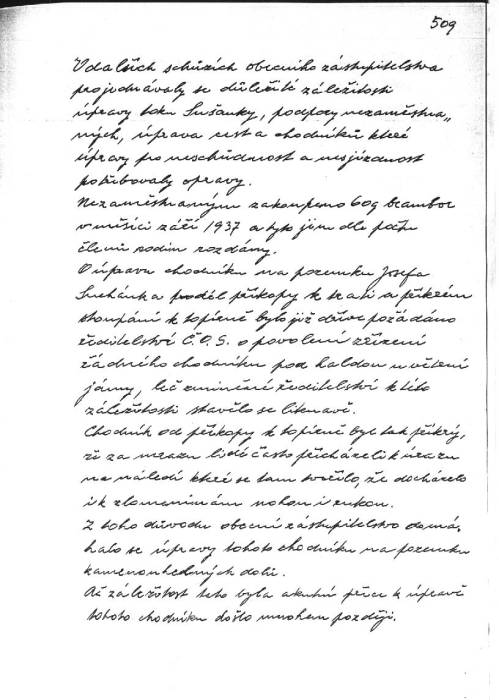 509
V dalších schůzích obecního zastupitelstva
projednávaly se důležité záležitosti
úpravy toku Sušanky, podpory nezaměstna„
ných, úprava cest a chodníků které
úpravy pro neschůdnost a nesjízdnost
potřebovaly opravy.
Nezaměstnaným zakoupeno 60q brambor
v měsíci září 1937 a tyto jim dle počtu
členů rodin rozdány.
O úpravu chodníku na pozemku Josefa
Suchánka podél příkopy k trati a příkrém
stoupání k topírně bylo již dříve požádáno
ředitelství Č.O.S. o povolení zřízení
řádného chodníku pod haldou u větení
jámy, leč zmíněné ředitelství k této
záležitosti stavělo se liknavě.
Chodník od příkopy k topírně byl tak příkrý,
že za mrazu lidé často přicházeli k úrazu
na náledí které se tam tvořilo, že docházelo
i k zlomeninám nohou i rukou.
Z toho důvodu obecní zastupitelstvo domá„
halo se úpravy tohoto chodníku na pozemku
kamenouhelných dolů.
Ač záležitost tato byla akutní přece k úpravě
tohoto chodníku došlo mnohem později.